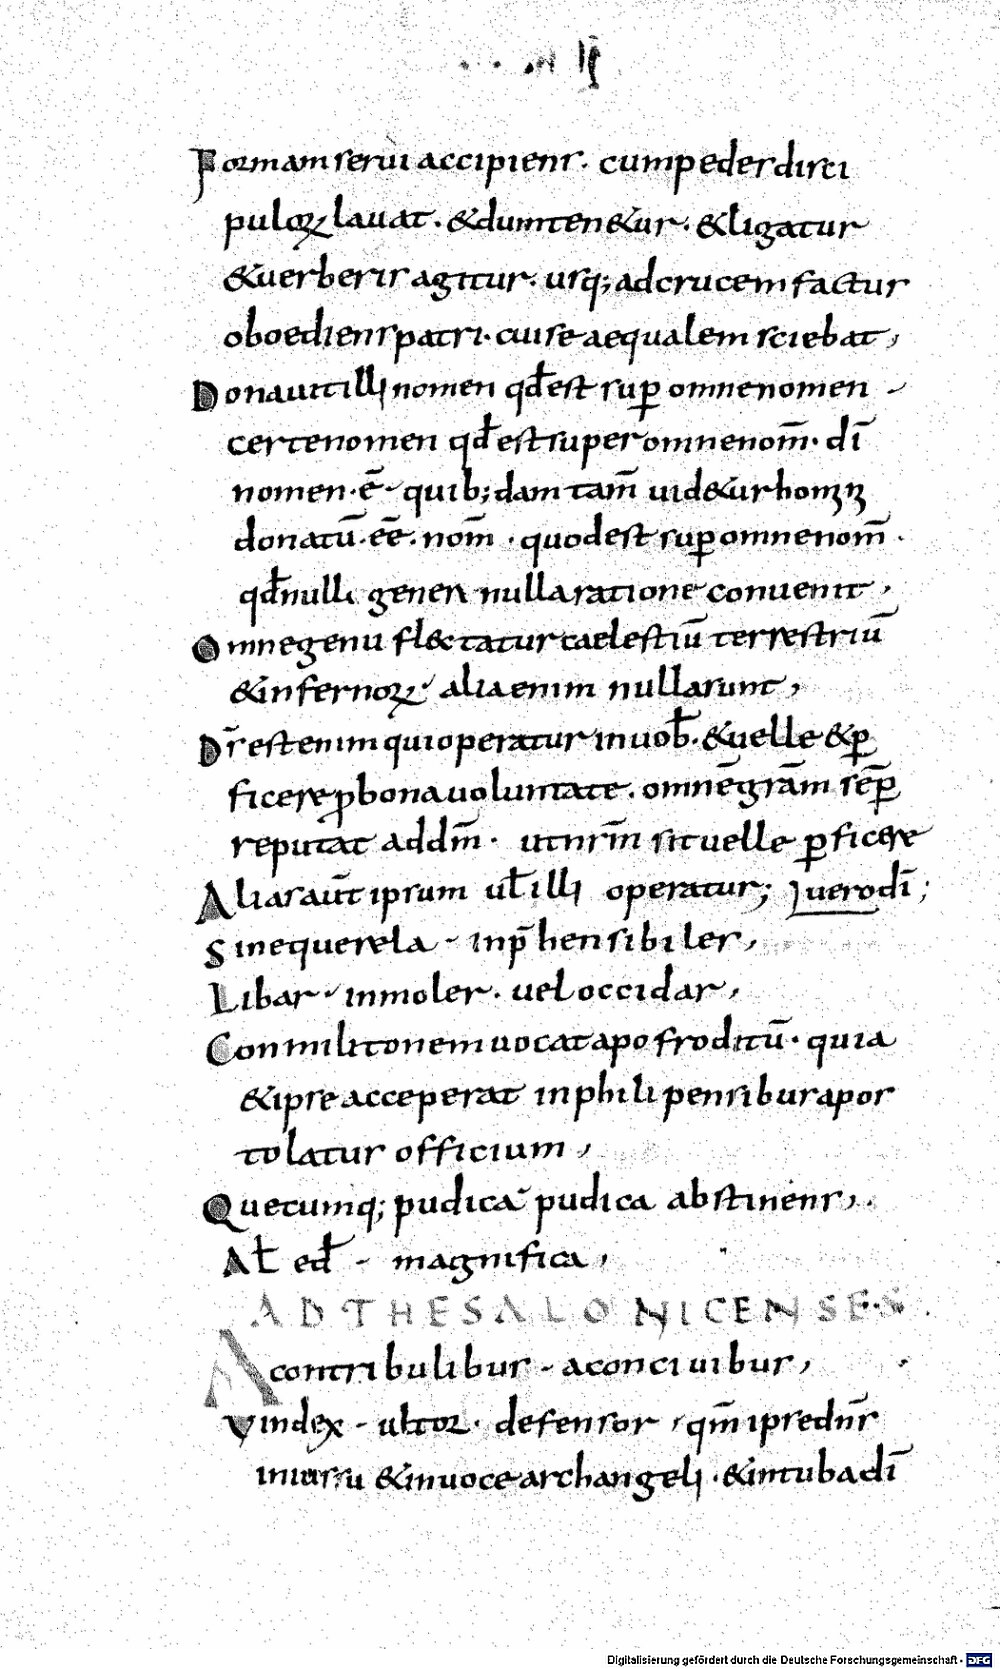 Formam serui accipiens. cum pedes disci
puloꝝ lauat. &dum ten&ur. &ligatur
&uerberis agitur. usq; adcrucem factus
oboediens patri. cui se aequalem sciebat,
Donauit illi nomen qđ est suꝑ omne nomen
certe nomen qđ est super omne nom̅. di̅
nomen. e̅ quib; dam tam̅ uid&ur
donatu̅. ee̅. nom̅. quod est suꝑ omne nom̅.
qđ nulli generi nulla ratione conuenit,
Omne genu fl&tatur caelestiu̅ terrestriu̅
&infernoꝝ. alia enim nulla sunt,
Ds̅ est enim qui operatur inuob̅. &uelle &ꝑ
ficere ꝓ bona uoluntate. omne̅ gra̅m se̅ꝑ
reputat ad dm̅. ut nr̅m sit uelle ꝑficere
Alias aut̅ ipsum ul̅ illi operatur; uero di̅;
Sinequerela - inp̅hensibiles,
Libar - inmoler. uel occidar,
Conmilitonem uocat apofroditu̅. quia
&ipse acceperat inphilipensibus apos
tolatus officium,
Quecumq; pudica pudica abstinens,
Al̅ ed̅ - magnifica,
AD THESALONICENSES.
A contribulibus - aconciuibus,
Vindex - ultor. defensor, qm̅ ipse dn̅s
iniussu &inuoce archangeli. &intuba di̅
Digitalisierung gefördert durch die Deutsche Forschungsgemeinschaft - DFG